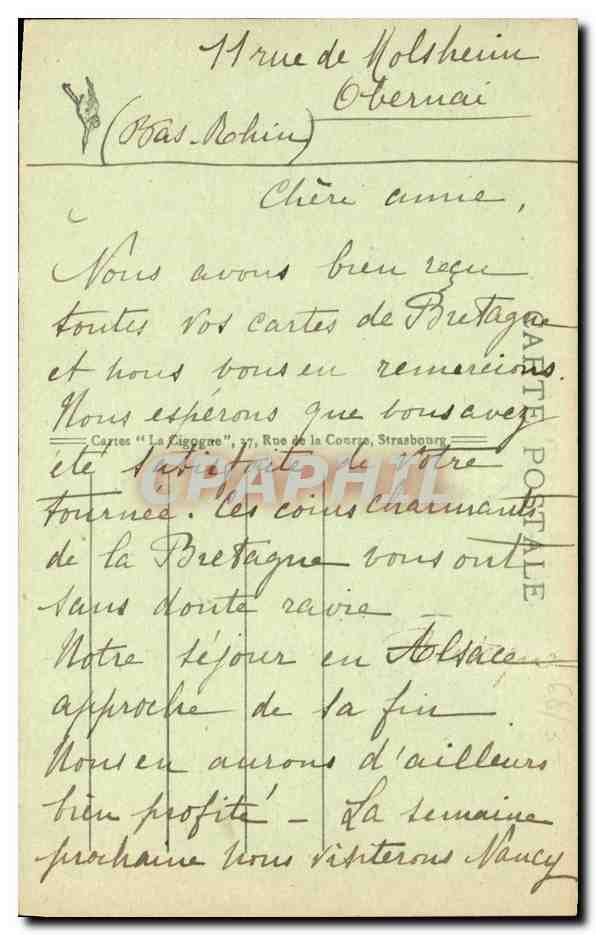 11 rue de Molsheim
Obernai
(Bas-Rhin)
Chère amie,
Nous avons bien reçu
toutes vos cartes de Bretagne
et nous vous en remercions.
Nous espérons que vous avez
Cartes "La Cigogne", 37, Rue de la Course, Strasbourg
été satisfaite de votre
CPAPHIL
tournée. Ces coins charmants
de la Bretagne vous ont
sans doute ravie
Notre séjour en Alsace
approche de sa fin
Nous en aurons d'ailleurs
bien profité - La semaine
prochaine nous visiterons Nancy
CARTE POSTALE